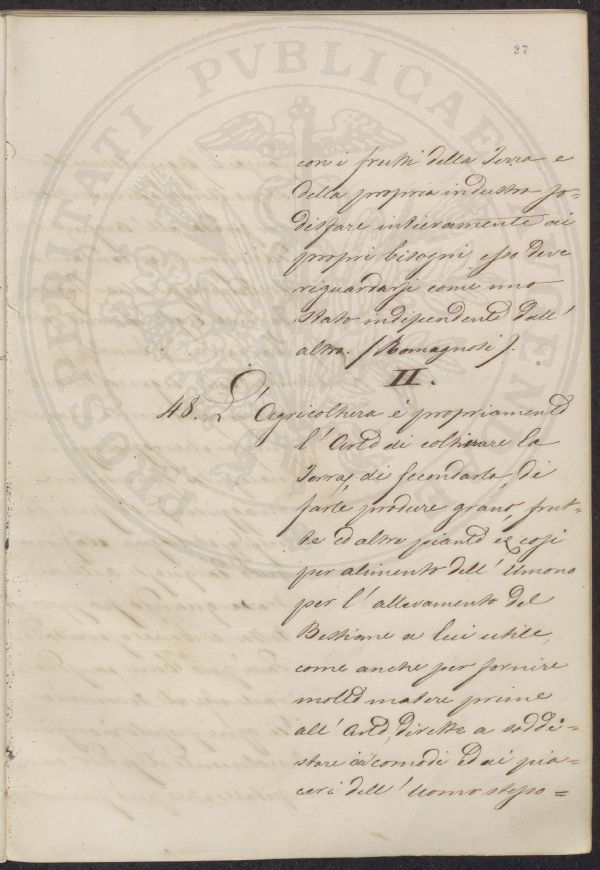 27
PROSPERITATI PVBLICAE AVGENDAE
con i frutti della Terra e
della propria industra so-
disfare intieramente ai
propri bisogni esso deve
riguardarsi come uno
Stato indipendente dall'
altro. (Romagnosi).
II.
48. L'Agricoltura é propriamente
l'Arte di coltivare la
Terra, di fecondarla, di
farle produre grano, frut-
te ed altre piante e cosi
per alimento dell' Umono
per l'allevamento del
Bestiame a lui utile,
come anche per fornire
molte matere prime
all' Arte, dirette a soddi=
sfare ai comodi ed ai pia=
ceri dell' Uomo stesso=